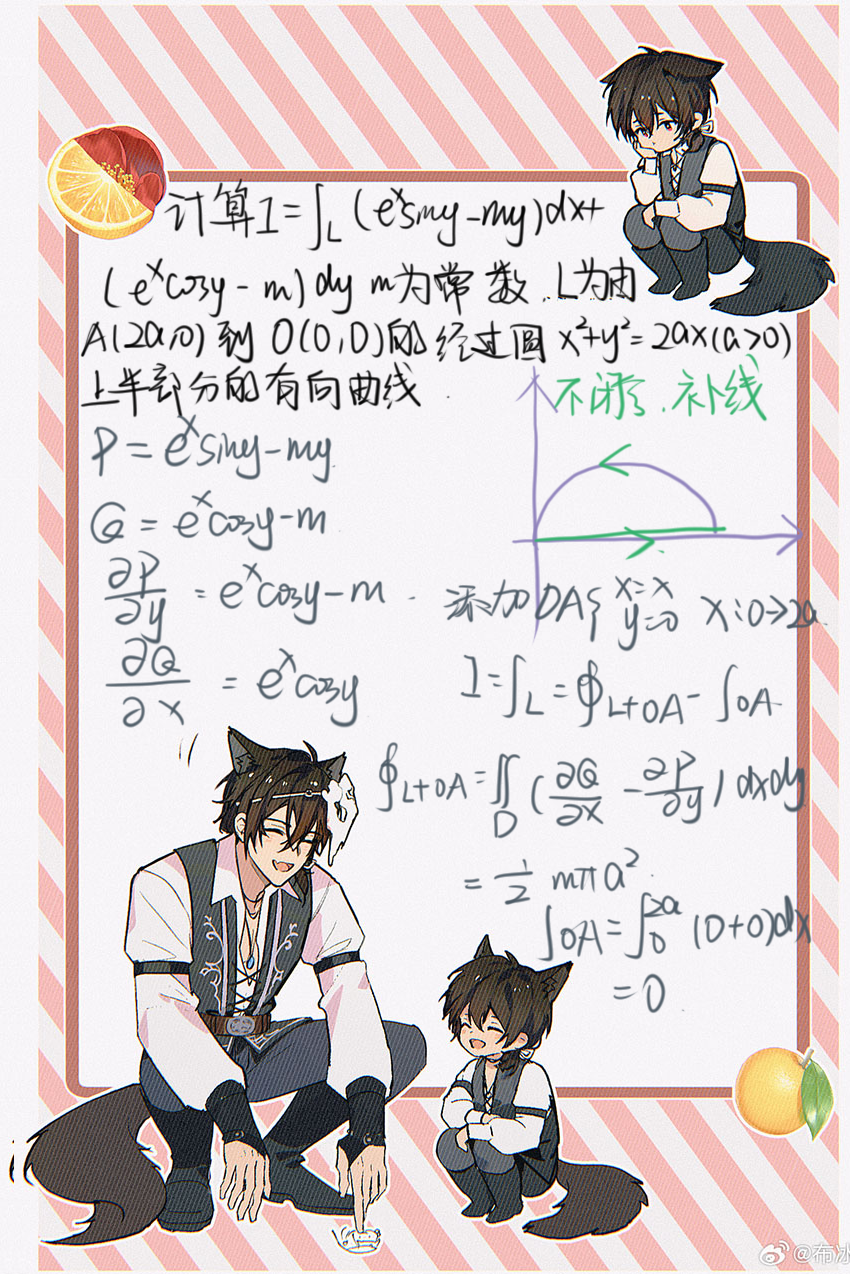 计算I=∫_L (e^x siny-my)dx+
(e^x cosy-m)dy m为常数,L为由
A(2a,0)到O(0,0)的经过圆x²+y²=2ax(a>0)
上半部分的有向曲线
不闭合,补线
P=e^x siny-my
Q=e^x cosy-m
∂P/∂y=e^x cosy-m
∂Q/∂x=e^x cosy
添加OA{x=x y=0 x:0→2a
I=∫_L=∮_{L+OA}-∫_{OA}
∮_{L+OA}=∬_D(∂Q/∂x-∂P/∂y)dxdy
=1/2 mπa²
∫_{OA}=∫_0^{2a}(0+0)dx
=0
@布冰